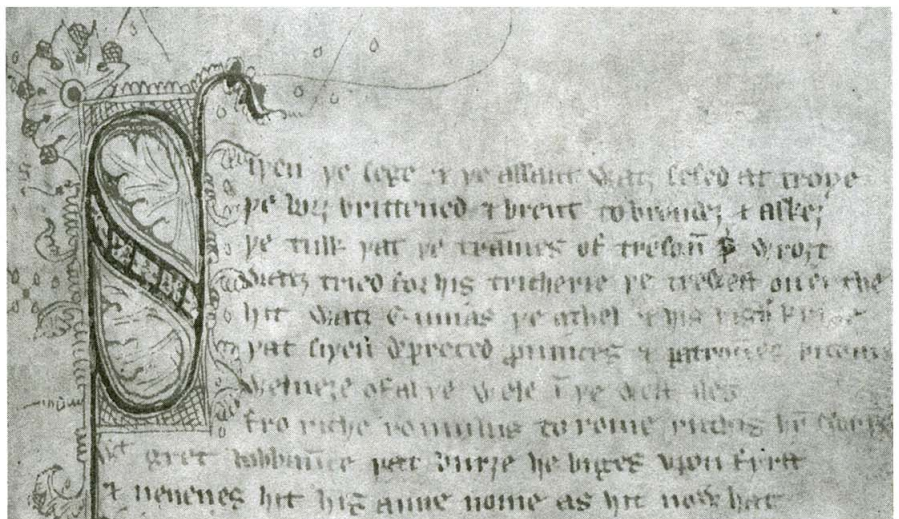 Siþen þe sege & þe assaut watz sesed at troye
þe borȝ brittened & brent to brondeȝ & askeȝ
þe tulk þat þe trāmes of tresoū þ̉ wroȝt
watz tried for his tricherie þe trewest on erthe
hit watz Ennias þe athel & his highe kynde
þat siþen depreced ꝓuinces & patroūes bicome
welneȝe of al þe wele ī þe west iles
fro riche romulus to rome ricchis hȳ swyþe
wͭ gret bobbaūce þat burȝe he biges vpon fyrst
& neuenes hit his aune nome as hit now hat